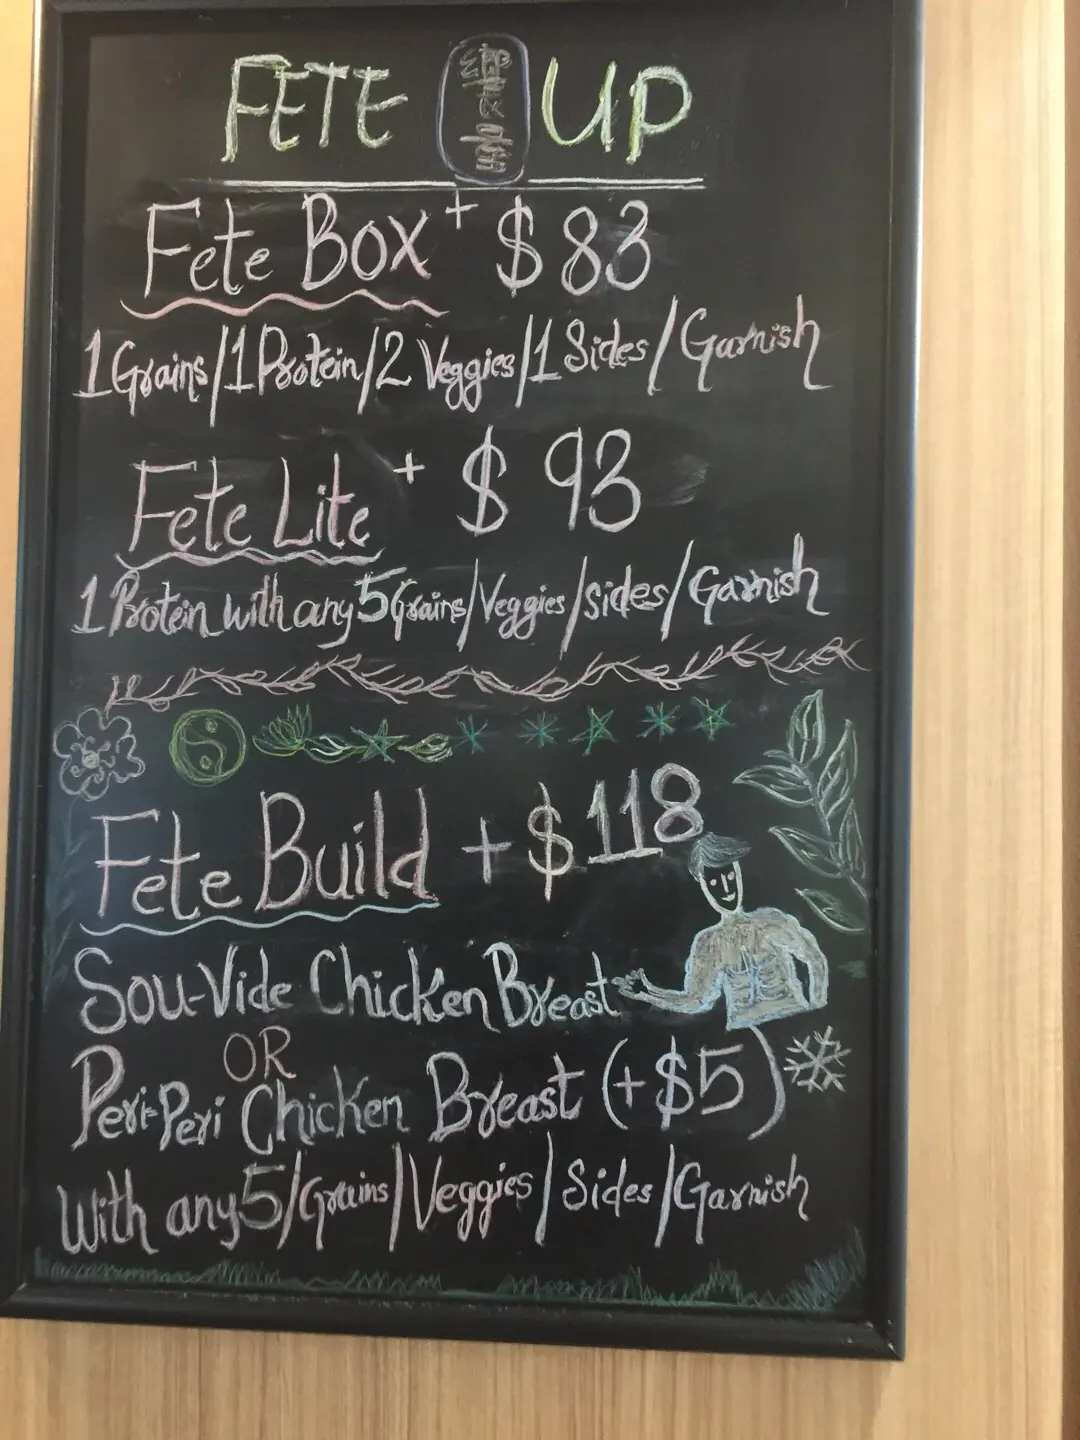 FETE UP
Fete Box + $83
1 Grains/1 Protein/2 Veggies/1 Sides/Garnish
Fete Lite + $93
1 Protein with any 5 Grains/Veggies/sides/Garnish
Fete Build + $118
Sou-Vide Chicken Breast
OR
Peri-Peri Chicken Breast (+$5)
With any 5/Grains/Veggies/Sides/Garnish